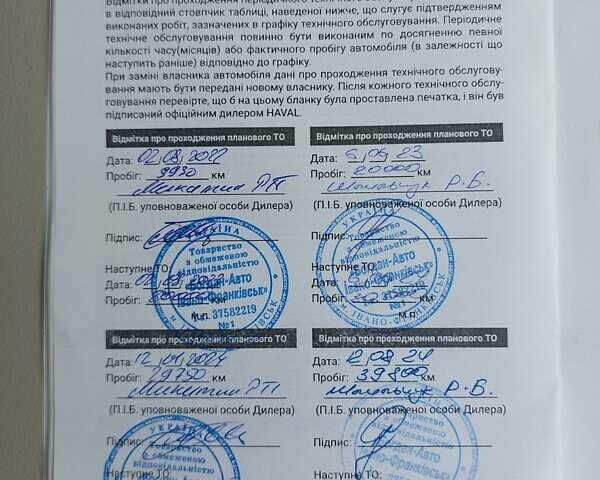 Відмітки про проходження періодичного технічного
в відповідний стовпчик таблиці, наведеної нижче, що слугує підтвердженням
виконаних робіт, зазначених в графіку технічного обслуговування. Періодичне
технічне обслуговування повинно бути виконаним по досягненню певної
кількості часу(місяців) або фактичного пробігу автомобіля (в залежності що
наступить раніше) відповідно до графіку.
При заміні власника автомобіля дані про проходження технічного обслугову-
вання мають бути передані новому власнику. Після кожного технічного обслу-
говування перевірте, що б на цьому бланку була проставлена печатка, і він був
підписаний офіційним дилером HAVAL.
Відмітка про проходження планового ТО
Дата: 02,08,2022
Пробіг: 9930 км
(П.І.Б. уповноваженої особи Дилера)
Підпис:
Наступне ТО:
Дата:
Пробіг: км
М.п.
УКРАЇНА
Товариство
з обмеженою
відповідальністю
«Богдан-Авто
Івано-Франківськ»
37582219
№1
Відмітка про проходження планового ТО
Дата: 23
Пробіг: 20000 км
Р.Б.
(П.І.Б. уповноваженої особи Дилера)
Підпис:
Наступне ТО:
Дата:
Пробіг:
М.п.
УКРАЇНА
Товариство
з обмеженою
відповідальністю
«Богдан-Авто
Івано-Франківськ»
37582219
№1
ІВАНО-ФРАНКІВСЬК
Відмітка про проходження планового ТО
Дата:
Пробіг: 29750 км
(П.І.Б. уповноваженої особи Дилера)
Підпис:
Наступне ТО:
УКРАЇНА
Товариство
з обмеженою
відповідальністю
Відмітка про проходження планового ТО
Дата: 12,08,24
Пробіг: 39800 км
Р.Б.
(П.І.Б. уповноваженої особи Дилера)
Підпис:
Наступне ТО:
УКРАЇНА
Товариство
з обмеженою
відповідальністю